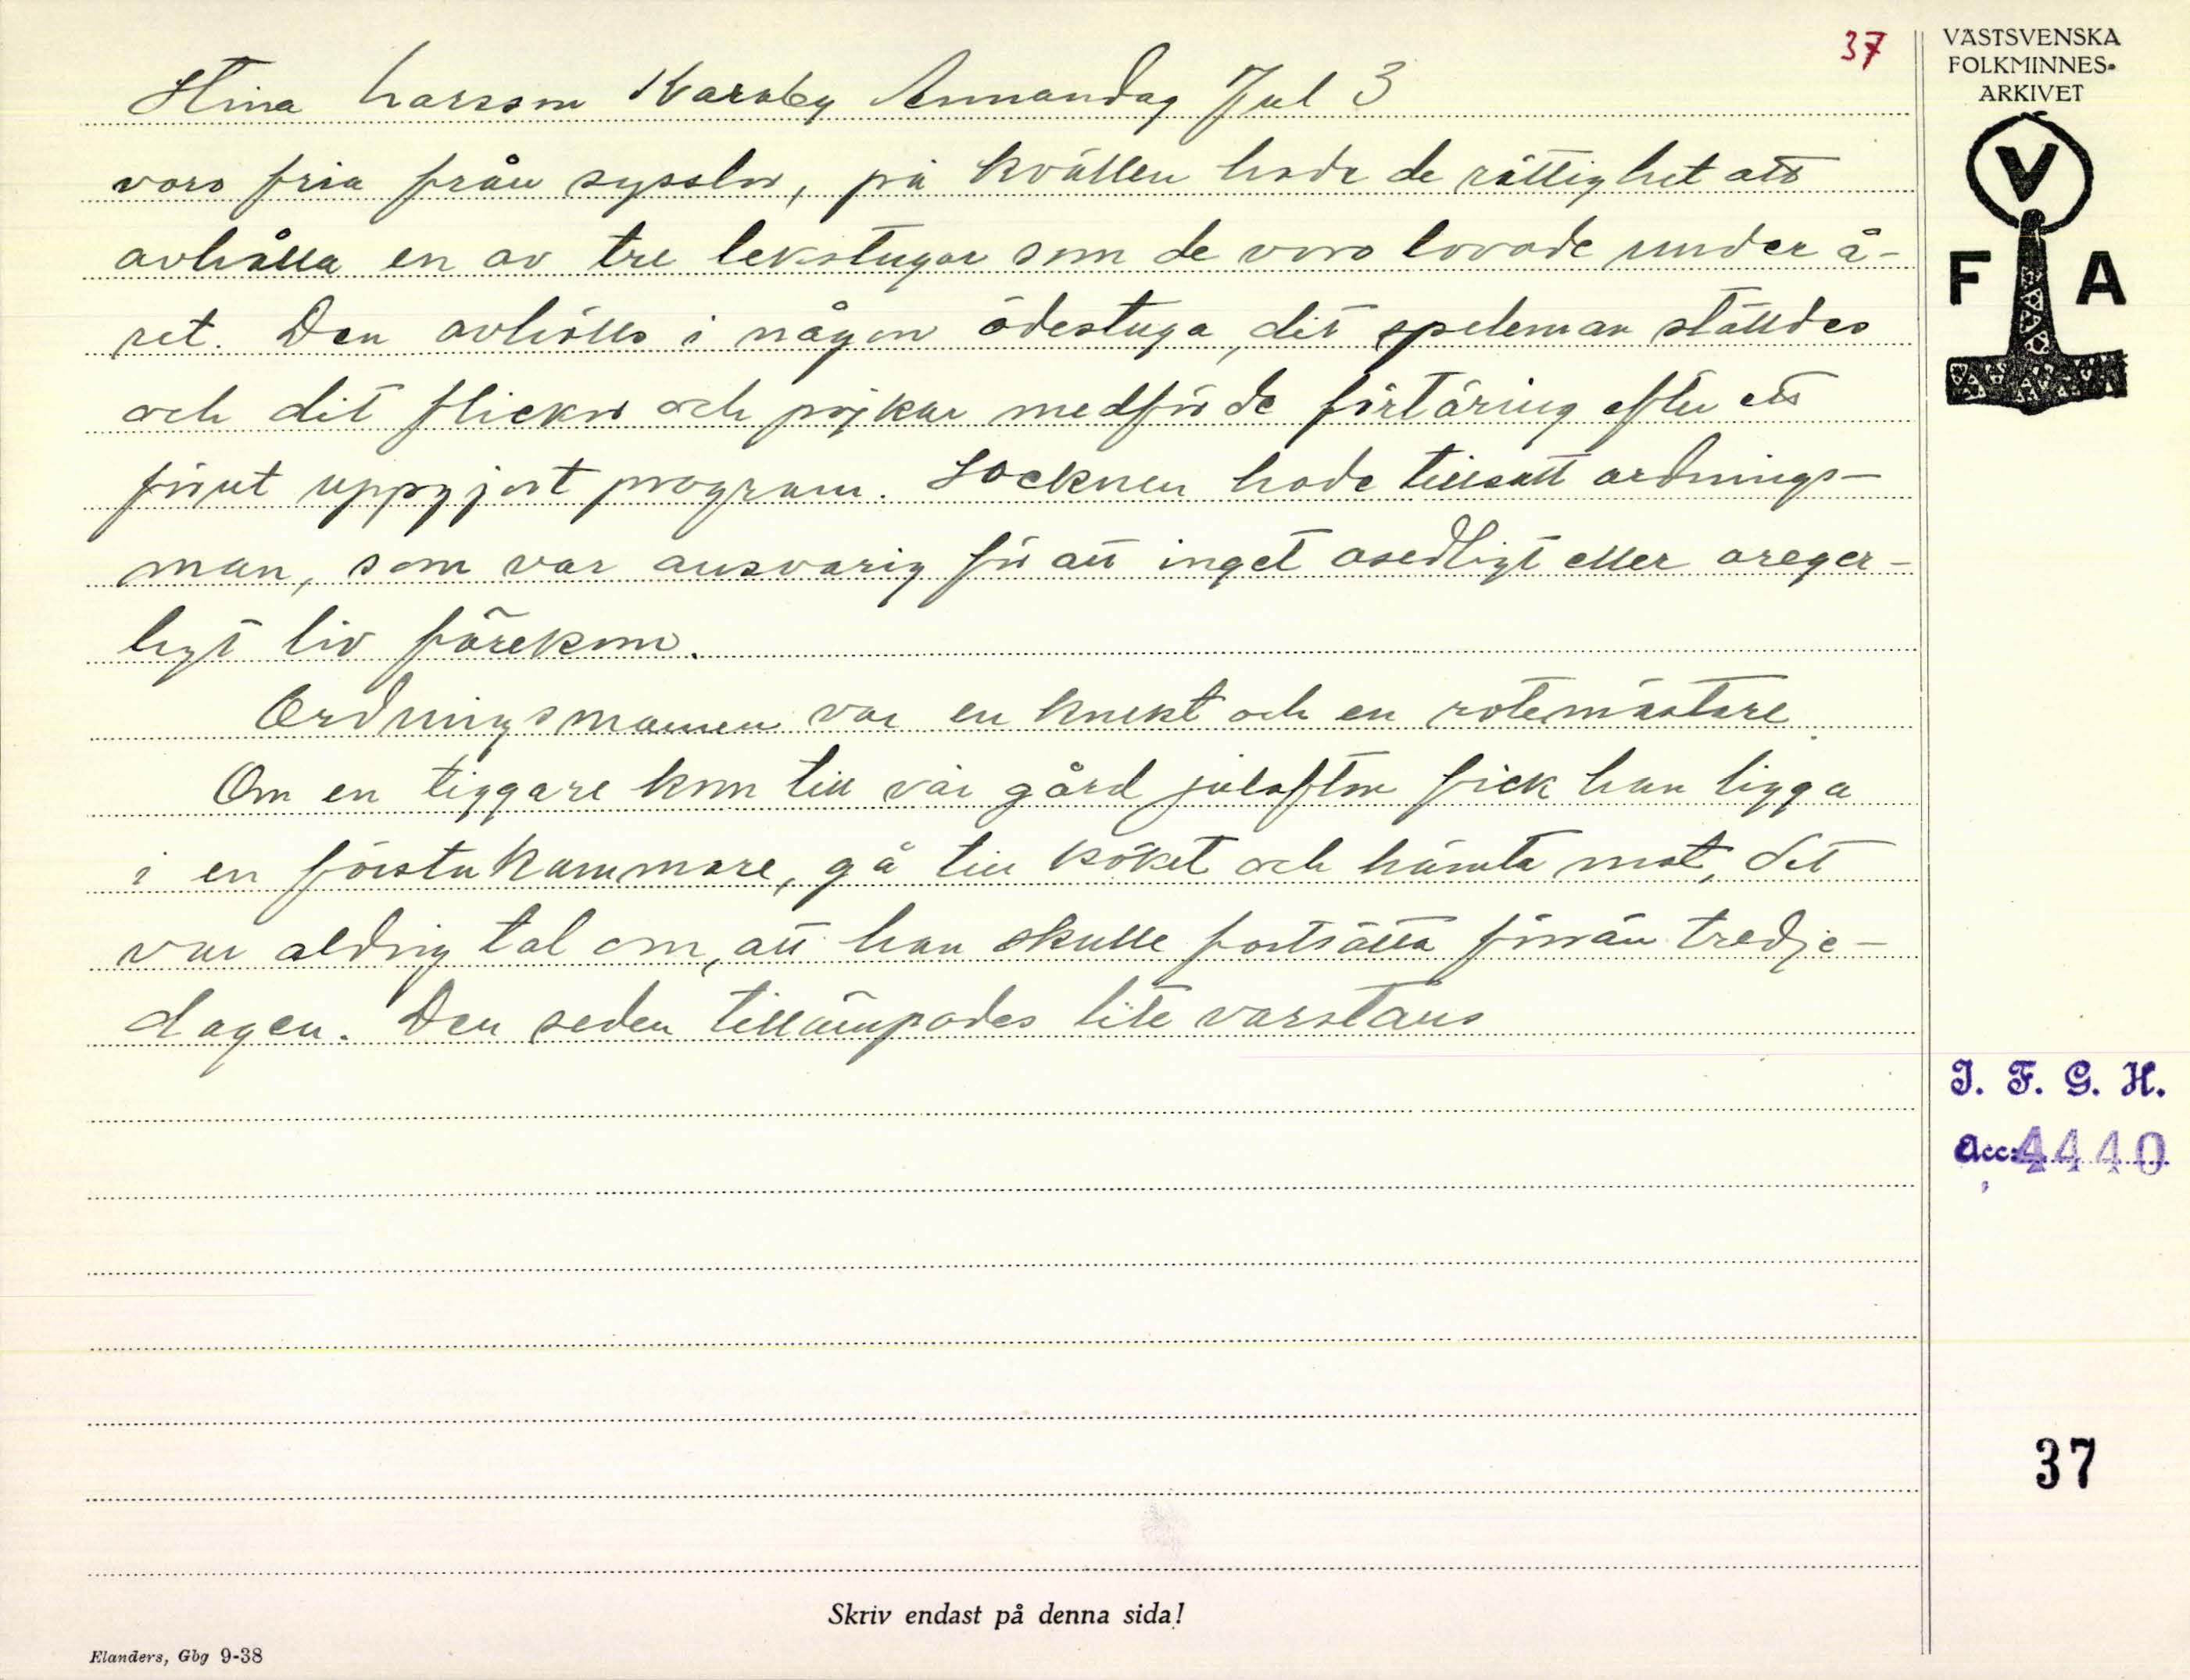 37
Stina Larsson Karaby Annandag Jul 3
voro fria från sysslor, på kvällen hade de rättighet att
avhålla en av tre lekstugor som de voro lovade under å-
ret. Den avhölls i någon ödestuga, dit speleman ställdes
och dit flickor och pojkar medförde förtäring efter ett
förut uppgjort program. Socknen hade tillsatt ordnings-
man, som var ansvarig för att inget osedligt eller oreger-
ligt liv förekom.
Ordningsmannen var en knekt och en rotemästare
Om en tiggare kom till vår gård julafton fick han ligga
i en förstukammare, gå till köket och hämta mat, det
var aldrig tal om, att han skulle fortsätta förrän tredje-
dagen. Den seden tillämpades lite varstans
VÄSTSVENSKA
FOLKMINNES-
ARKIVET
V
F A
I. F. G. H.
Acc: 4440
37
Skriv endast på denna sida!
Elanders, Gbg 9-38